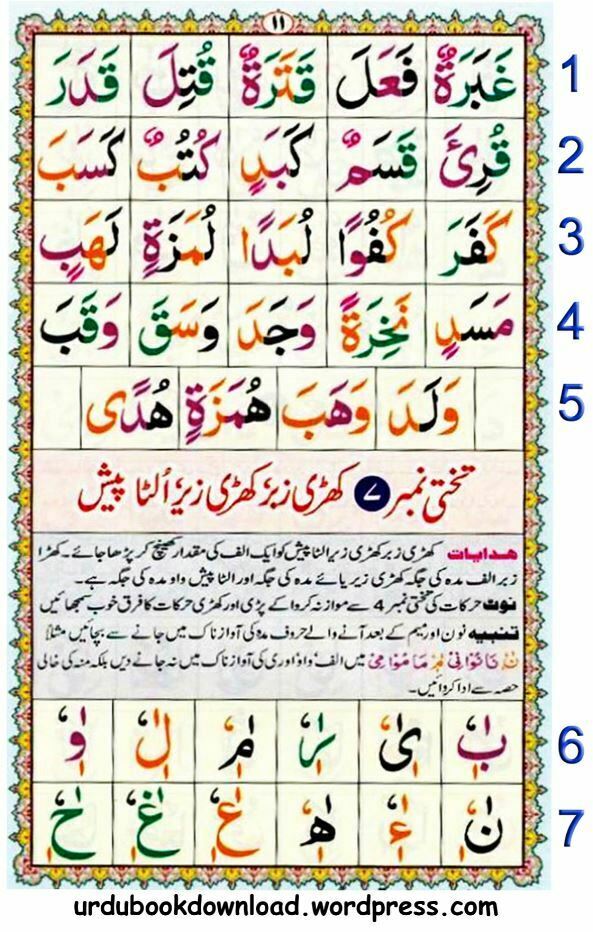 ١١
غَبَرَةٌ فَعَلَ قَتَرَةٌ قُتِلَ قَدَرَ 1
قُرِئَ قَسَمٌ كَبَدٍ كُتُبٌ كَسَبَ 2
كَفَرَ كُفُوًا لُبَدًا لُمَزَةٍ لَهَبٍ 3
مَسَدٍ نَخِرَةً وَجَدَ وَسَقَ وَقَبَ 4
وَلَدَ وَهَبَ هُمَزَةٍ هُدًى 5
تختی نمبر ۷ کھڑی زبر کھڑی زیر اُلٹا پیش
ھدایات کھڑی زبر کھڑی زیر الٹا پیش کو ایک الف کی مقدار کھینچ کر پڑھا جائے۔ کھڑا
زبر الف مدہ کی جگہ کھڑی زیر یائے مدہ کی جگہ اور الٹا پیش واو مدہ کی جگہ ہے۔
نوٹ حرکات کی تختی نمبر 4 سے موازنہ کروا کے پڑی اور کھڑی حرکات کا فرق خوب سمجھائیں
تنبیہ نون اور میم کے بعد آنے والے حروف مدہ کی آواز ناک میں جانے سے بچائیں مثلاً
میں الف واؤ اور ی کی آواز ناک میں نہ جانے دیں بلکہ منہ کی خالی
حصہ سے ادا کروائیں۔
بٰ یٰ رٰ مٰ لٰ وٰ 6
نٰ ءٰ ھٰ عٰ غٰ حٰ 7
urdubookdownload.wordpress.com